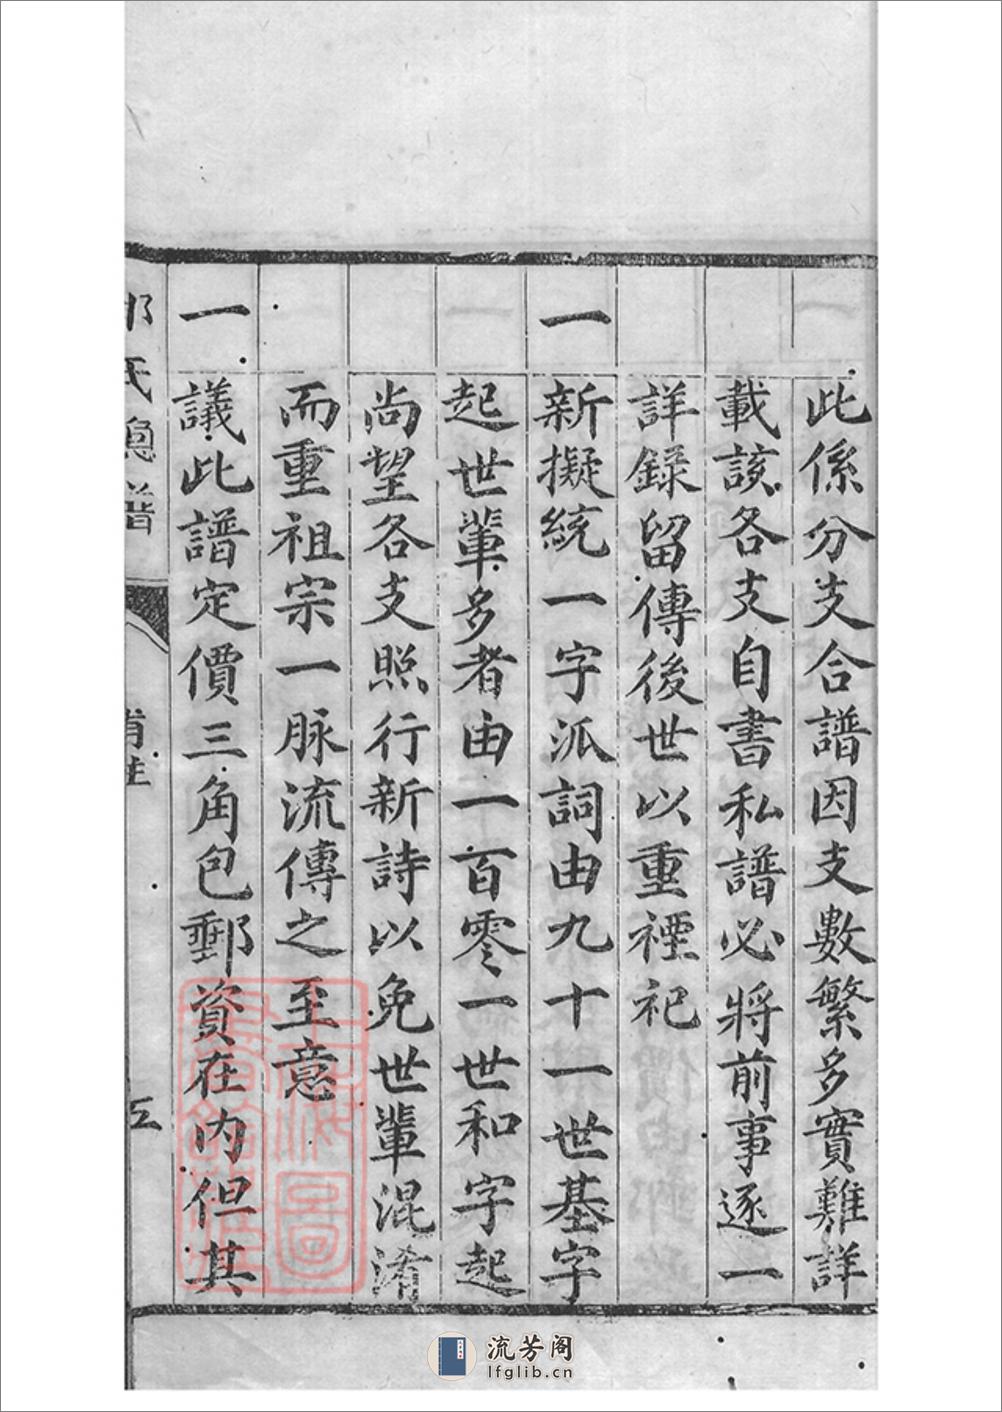 此係分支合譜因支數繁多實難詳
載該各支自書私譜必將前事逐一
詳錄留傳後世以重禋祀
一 新擬統一字派詞由九十一世基字
起世輩多者由一百零一世和字起
尚望各支照行新詩以免世輩混淆
而重祖宗一脈流傳之至意
一 議此譜定價三角包郵資在內但其
氏 譜
上海圖書館藏
流芳阁
lfglib.cn